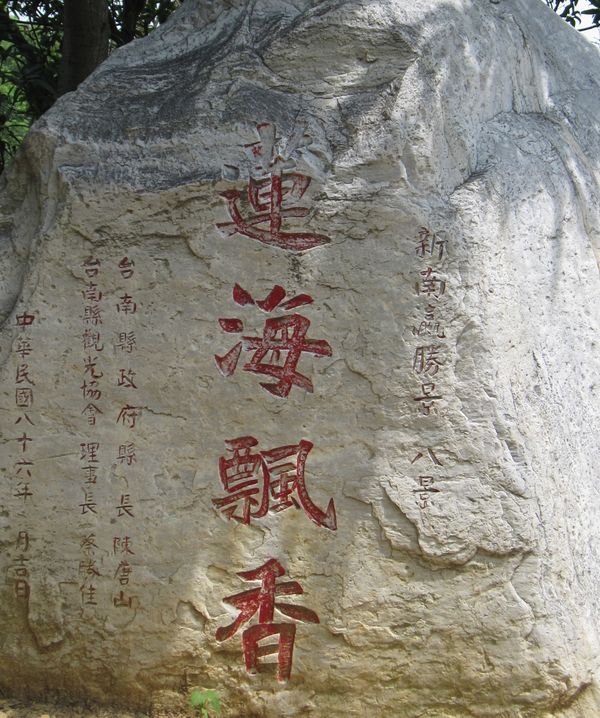 新南瀛勝景 八景
蓮海飄香
台南縣政府縣長 陳唐山
台南縣觀光協會 理事長 蔡勝佳
中華民國八十六年 月吉日